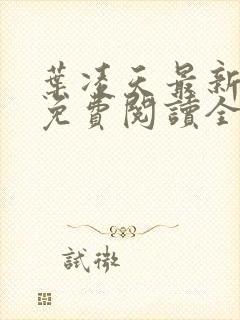 葉凌天最新
免費閱讀全
試微